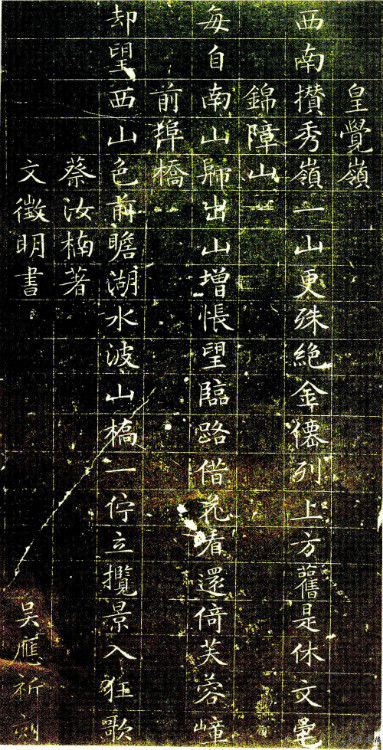 皇覺嶺
西南攢秀嶺一山更殊絶金僊列上方舊是休文
錦障山
每自南山歸出山增悵望臨路借花看還倚芙蓉嶂
前埠橋
却望西山色前瞻湖水波山橋一佇立攬景入狂歌
蔡汝楠著
文徵明書
吳應祈刻